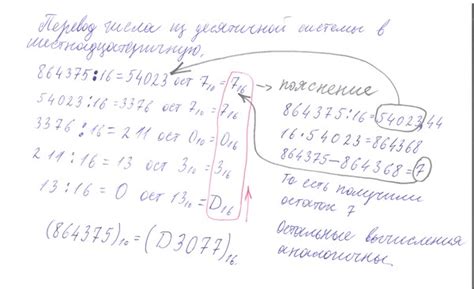 Перевод числа из десятичной системы в
шестнадцатеричную.
864375:16=54023 ост 7₁₀=7₁₆
54023:16=3376 ост 7₁₀=7₁₆
3376:16=211 ост 0₁₀=0₁₆
211:16=13 ост 3₁₀=3₁₆
13:16=0 ост 13₁₀=D₁₆
(864375)₁₀=(D3077)₁₆.
→ пояснение
864375:16=54023,44
16·54023=864368
864375-864368=7
То есть получили
остаток 7
Остальные вычисления
аналогичны.